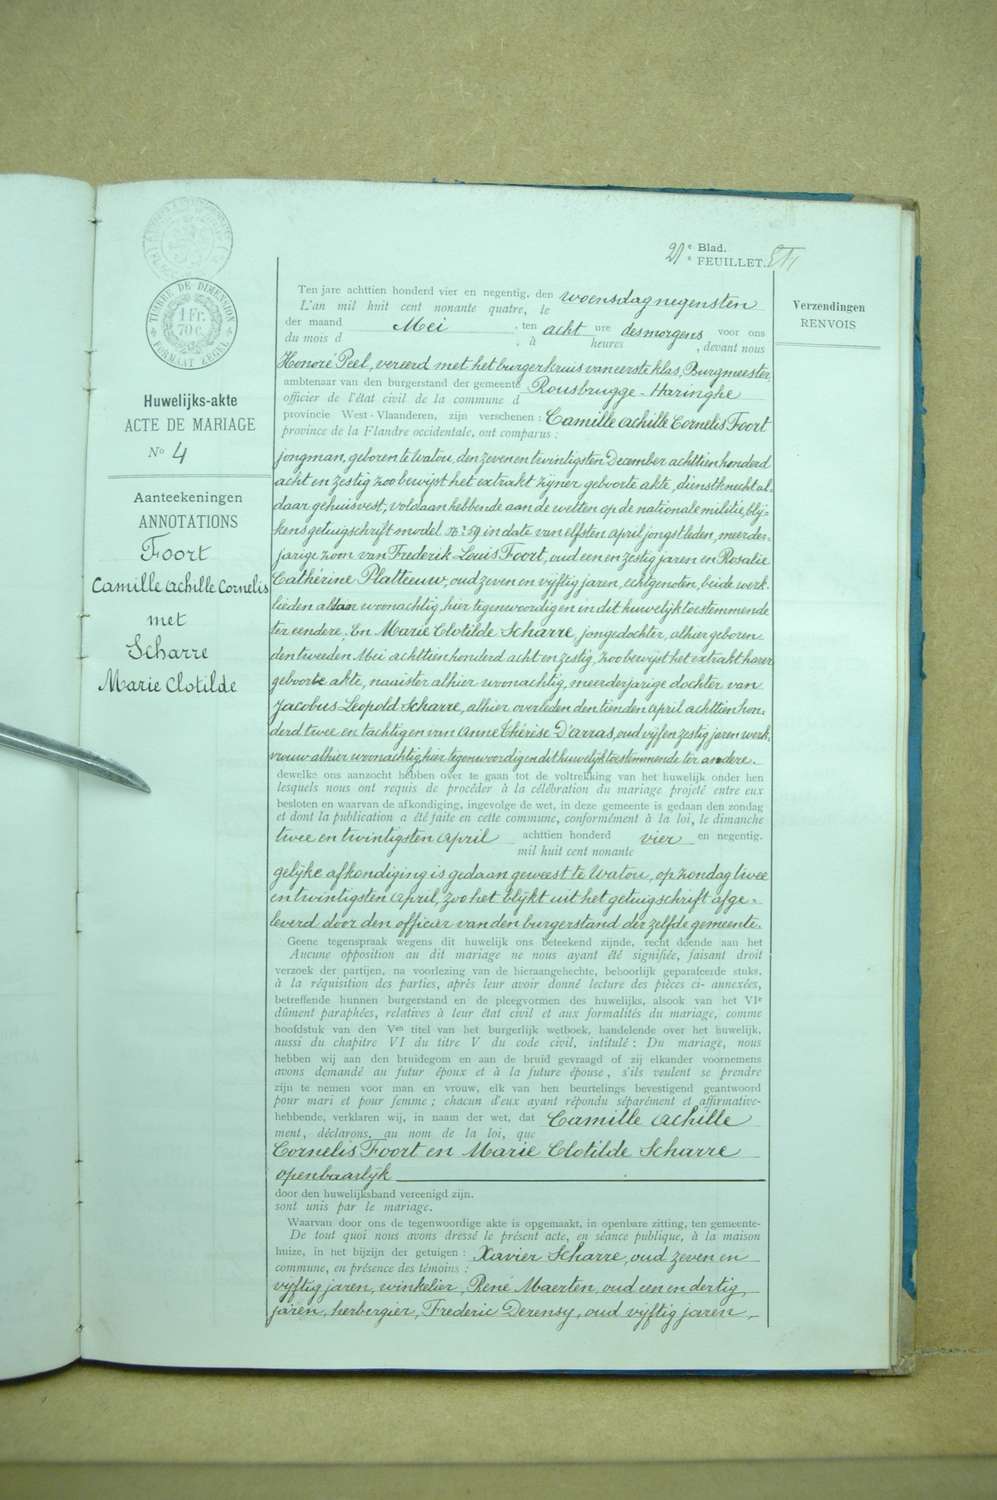 21e Blad.
e FEUILLET.
TIMBRE DE DIMENSION
1 Fr.
70 c.
FORMAAT ZEGEL
Huwelijks-akte
ACTE DE MARIAGE
No 4
Aanteekeningen
ANNOTATIONS
Foort
Camille Achille Cornelis
met
Scharre
Marie Clotilde
Verzendingen
RENVOIS
Ten jare achttien honderd vier en negentig, den woensdag negensten
L'an mil huit cent nonante quatre, le
der maand Mei, ten acht ure desmorgens voor ons
du mois d , à heures , devant nous
Honoré Peel, vereerd met het burgerkruis van eerste klas, Burgmeester
ambtenaar van den burgerstand der gemeente Rousbrugge-Haringhe
officier de l'état civil de la commune d
provincie West-Vlaanderen, zijn verschenen : Camille Achille Cornelis Foort
province de la Flandre occidentale, ont comparus :
jongman, geboren te Watou, den zeven en twintigsten December achttien honderd
acht en zestig zoo bewijst het extrakt zijner geboorte akte, dienstknecht al-
daar gehuisvest, voldaan hebbende aan de wetten op de nationale militie, blij-
kens getuigschrift model No 59 in date van elfsten april jongstleden, meerder-
jarige zoon van Frederik Louis Foort, oud een en zestig jaren en Rosalie
Cathérine Platteeuw, oud zeven en vijftig jaren, echtgenoten, beide werk-
lieden aldaar woonachtig, hier tegenwoordig en in dit huwelijk toestemmende
ter eendere. En Marie Clotilde Scharre, jongedochter, alhier geboren
den tweeden Mei achttien honderd acht en zestig, zoo bewijst het extrakt harer
geboorte akte, naaister alhier woonachtig, meerderjarige dochter van
Jacobus Leopold Scharre, alhier overleden den tienden April achttien hon-
derd twee en tachtig en van Anne Thérèse D'arras, oud vijf en zestig jaren werk-
vrouw alhier woonachtig hier tegenwoordig en dit huwelijk toestemmende ter andere.
dewelke ons aanzocht hebben over te gaan tot de voltrekking van het huwelijk onder hen
lesquels nous ont requis de procéder à la célébration du mariage projeté entre eux
besloten en waarvan de afkondiging, ingevolge de wet, in deze gemeente is gedaan den zondag
et dont la publication a été faite en cette commune, conformément à la loi, le dimanche
twee en twintigsten April achttien honderd vier en negentig.
mil huit cent nonante
gelijke afkondiging is gedaan geweest te Watou, op zondag twee
en twintigsten April, zoo het blijkt uit het getuigschrift afge-
leverd door den officier van den burgerstand der zelfde gemeente.
Geene tegenspraak wegens dit huwelijk ons beteekend zijnde, recht doende aan het
Aucune opposition au dit mariage ne nous ayant été signifiée, faisant droit
verzoek der partijen, na voorlezing van de hieraangehechte, behoorlijk geparafeerde stuks,
à la réquisition des parties, après leur avoir donné lecture des pièces ci-annexées,
betreffende hunnen burgerstand en de pleegvormen des huwelijks, alsook van het VIe
dûment paraphées, relatives à leur état civil et aux formalités du mariage, comme
hoofdstuk van den Ven titel van het burgerlijk wetboek, handelende over het huwelijk,
aussi du chapitre VI du titre V du code civil, intitulé : Du mariage, nous
hebben wij aan den bruidegom en aan de bruid gevraagd of zij elkander voornemens
avons demandé au futur époux et à la future épouse, s'ils veulent se prendre
zijn te nemen voor man en vrouw, elk van hen beurtelings bevestigend geantwoord
pour mari et pour femme ; chacun d'eux ayant répondu séparément et affirmative-
hebbende, verklaren wij, in naam der wet, dat Camille Achille
ment, déclarons, au nom de la loi, que
Cornelis Foort en Marie Clotilde Scharre
openbaarlijk
door den huwelijksband vereenigd zijn.
sont unis par le mariage.
Waarvan door ons de tegenwoordige akte is opgemaakt, in openbare zitting, ten gemeente-
De tout quoi nous avons dressé le présent acte, en séance publique, à la maison
huize, in het bijzijn der getuigen : Xavier Scharre, oud zeven en
commune, en présence des témoins :
vijftig jaren, winkelier, René Maerten, oud een en dertig
jaren, herbergier, Frederic Derensy, oud vijftig jaren,